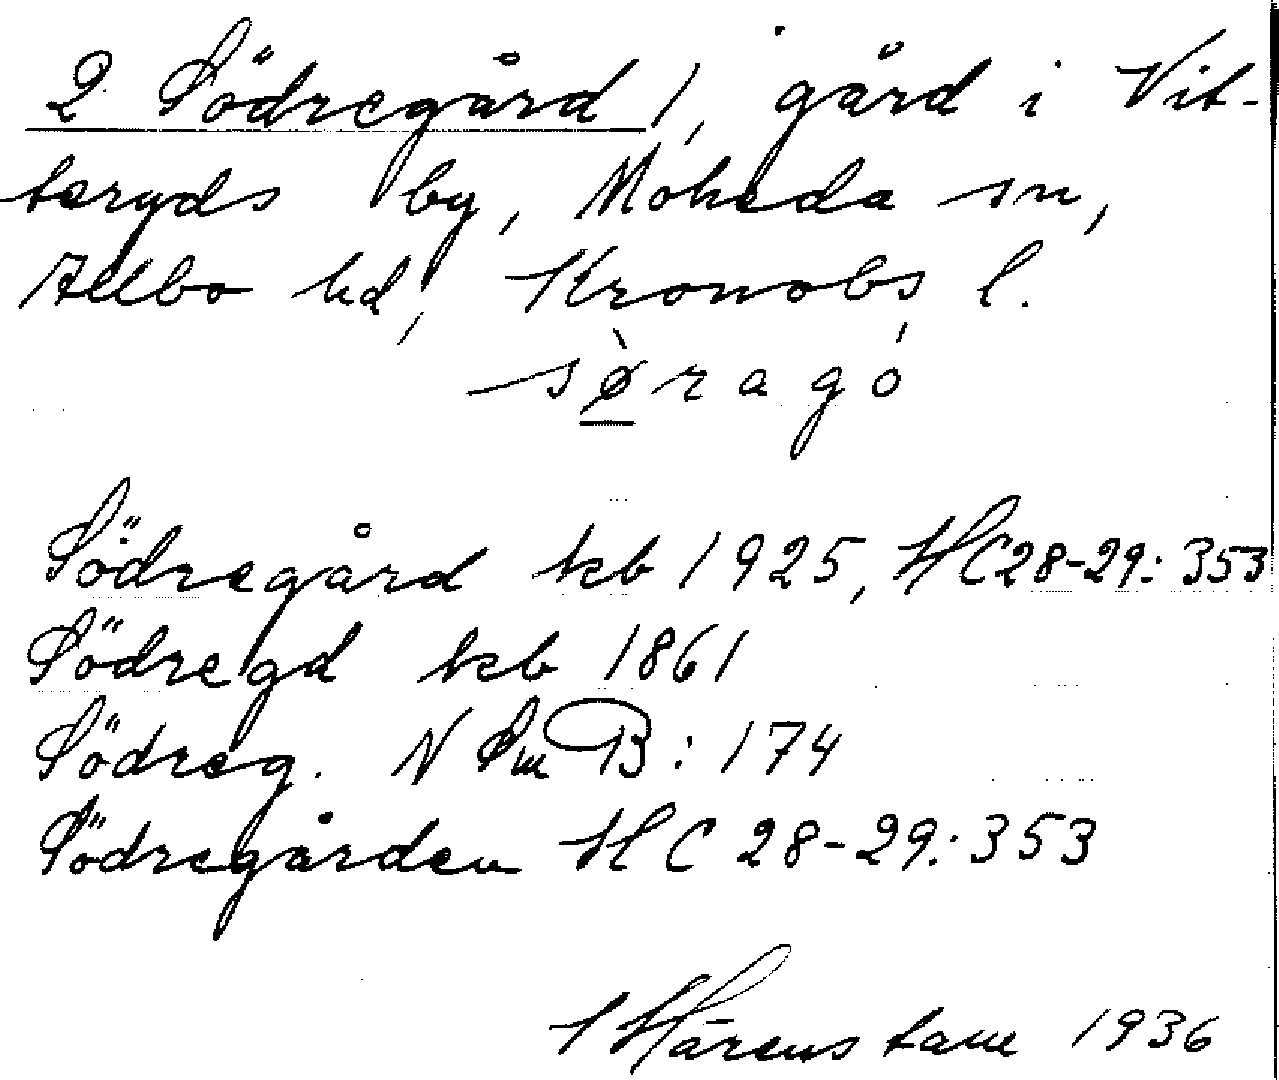 2 Södregård 1, gård i Vit-
teryds by, Moheda sn,
Allbo hd, Kronobs l.
sø̀ragó
Södregård kb 1925, HC28-29:353
Södregd kb 1861
Södreg. N Sm B:174
Södregården HC 28-29:353
Härenstam 1936